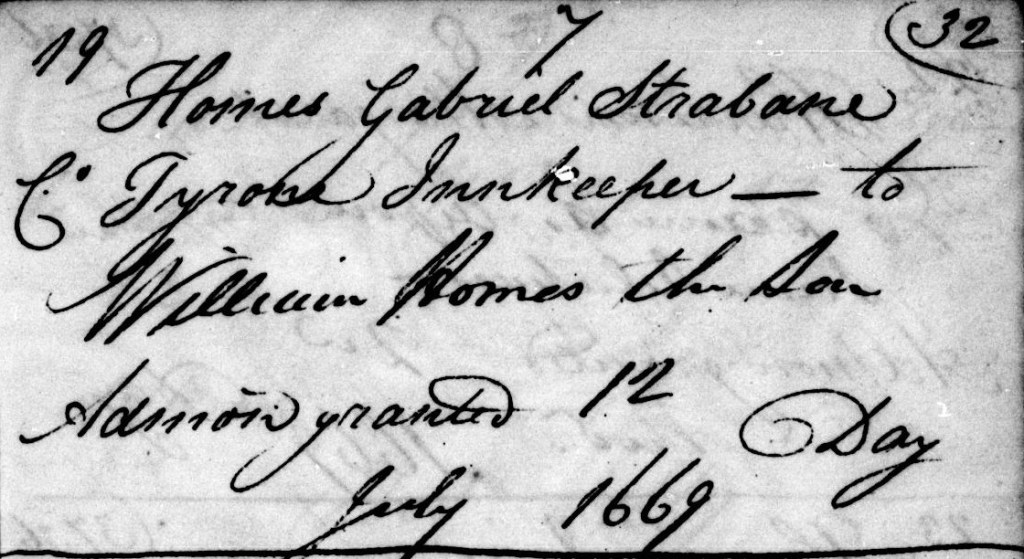 19 7 32
Homes Gabriel Strabane
Co Tyrone Innkeeper — to
William Homes the Son
Admon granted 12 Day
July 1669